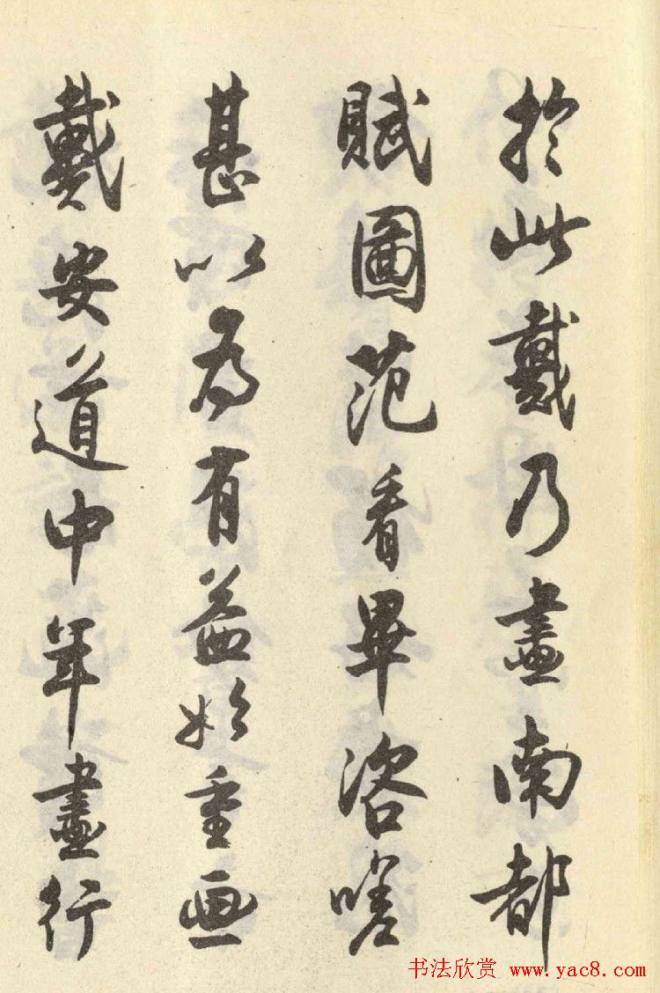 於此戴乃畫南都
賦圖范看畢咨嗟
甚以為有益始重画
戴安道中年畫行
书法欣赏 www.yac8.com